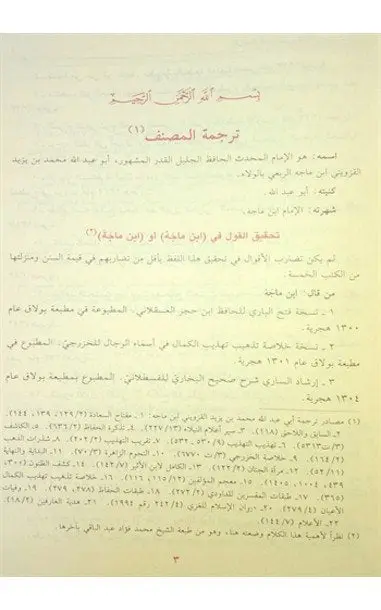 بسم الله الرحمن الرحيم
ترجمة المصنف (١)
اسمه: هو الإمام المحدث الحافظ الجليل القدر المشهور، أبو عبد الله محمد بن يزيد
القزويني ابن ماجه الربعي بالولاء.
كنيته: أبو عبد الله.
شهرته: الإمام ابن ماجه.
تحقيق القول في (ابن ماجه) او (ابن ماجة) (٢)
لم يكن تضارب الأقوال في تحقيق هذا اللفظ بأقل من تضاربهم في قيمة السنن ومنزلتها
من الكتب الخمسة.
من قال: ابن ماجة
١ - نسخة فتح الباري للحافظ ابن حجر العسقلاني، المطبوعة في مطبعة بولاق عام
١٣٠٠ هجرية.
٢ - نسخة خلاصة تذهيب تهذيب الكمال في أسماء الرجال للخزرجي، المطبوع في
مطبعة بولاق عام ١٣٠١ هجرية.
٣ - إرشاد الساري شرح صحيح البخاري للقسطلاني، المطبوع بمطبعة بولاق عام
١٣٠٤ هجرية.
(١) مصادر ترجمة أبي عبد الله محمد بن يزيد القزويني ابن ماجه: ١- مفتاح السعادة (١٢٩/٢، ١٣٩، ١٤٤).
٢- السابق واللاحق (١١٨). ٣- سير أعلام النبلاء (٢٢٧/١٣). ٤- تذكرة الحفاظ (٦٣٦/٢). ٥- الكاشف
٦- تهذيب التهذيب (٥٣٠/٩، ٥٣٢). ٧- تقريب التهذيب (٢٠٢/٢). ٨- شذرات الذهب
(١٦٤/٢). ٩- خلاصة الخزرجي ١٠- النجوم الزاهرة (٧٠/٣). ١١- البداية والنهاية
(٥٢/١١). ١٢- مرآة الجنان ١٣- الكامل لابن الأثير ١٤- كشف الظنون (٣٠٠،
١٥- معجم المؤلفين (١١٥/١٢، ١١٦). ١٦- خلاصة تذهيب تهذيب الكمال
(٣٦٥). ١٧- طبقات المفسرين للداودي (٢٧٢/٢). ١٨- طبقات الحفاظ (٢٧٨، ٢٧٩). ١٩- وفيات
الأعيان (٢٧٩/٤). ٢٠- ديوان الإسلام للغزي ٢١- هدية العارفين (١٨/٢).
٢٢- الأعلام (١٤٤/٧).
(٢) نظراً لأهمية هذا الكلام وضعته هنا، وهو من طبعة الشيخ محمد فؤاد عبد الباقي بآخرها.
٣